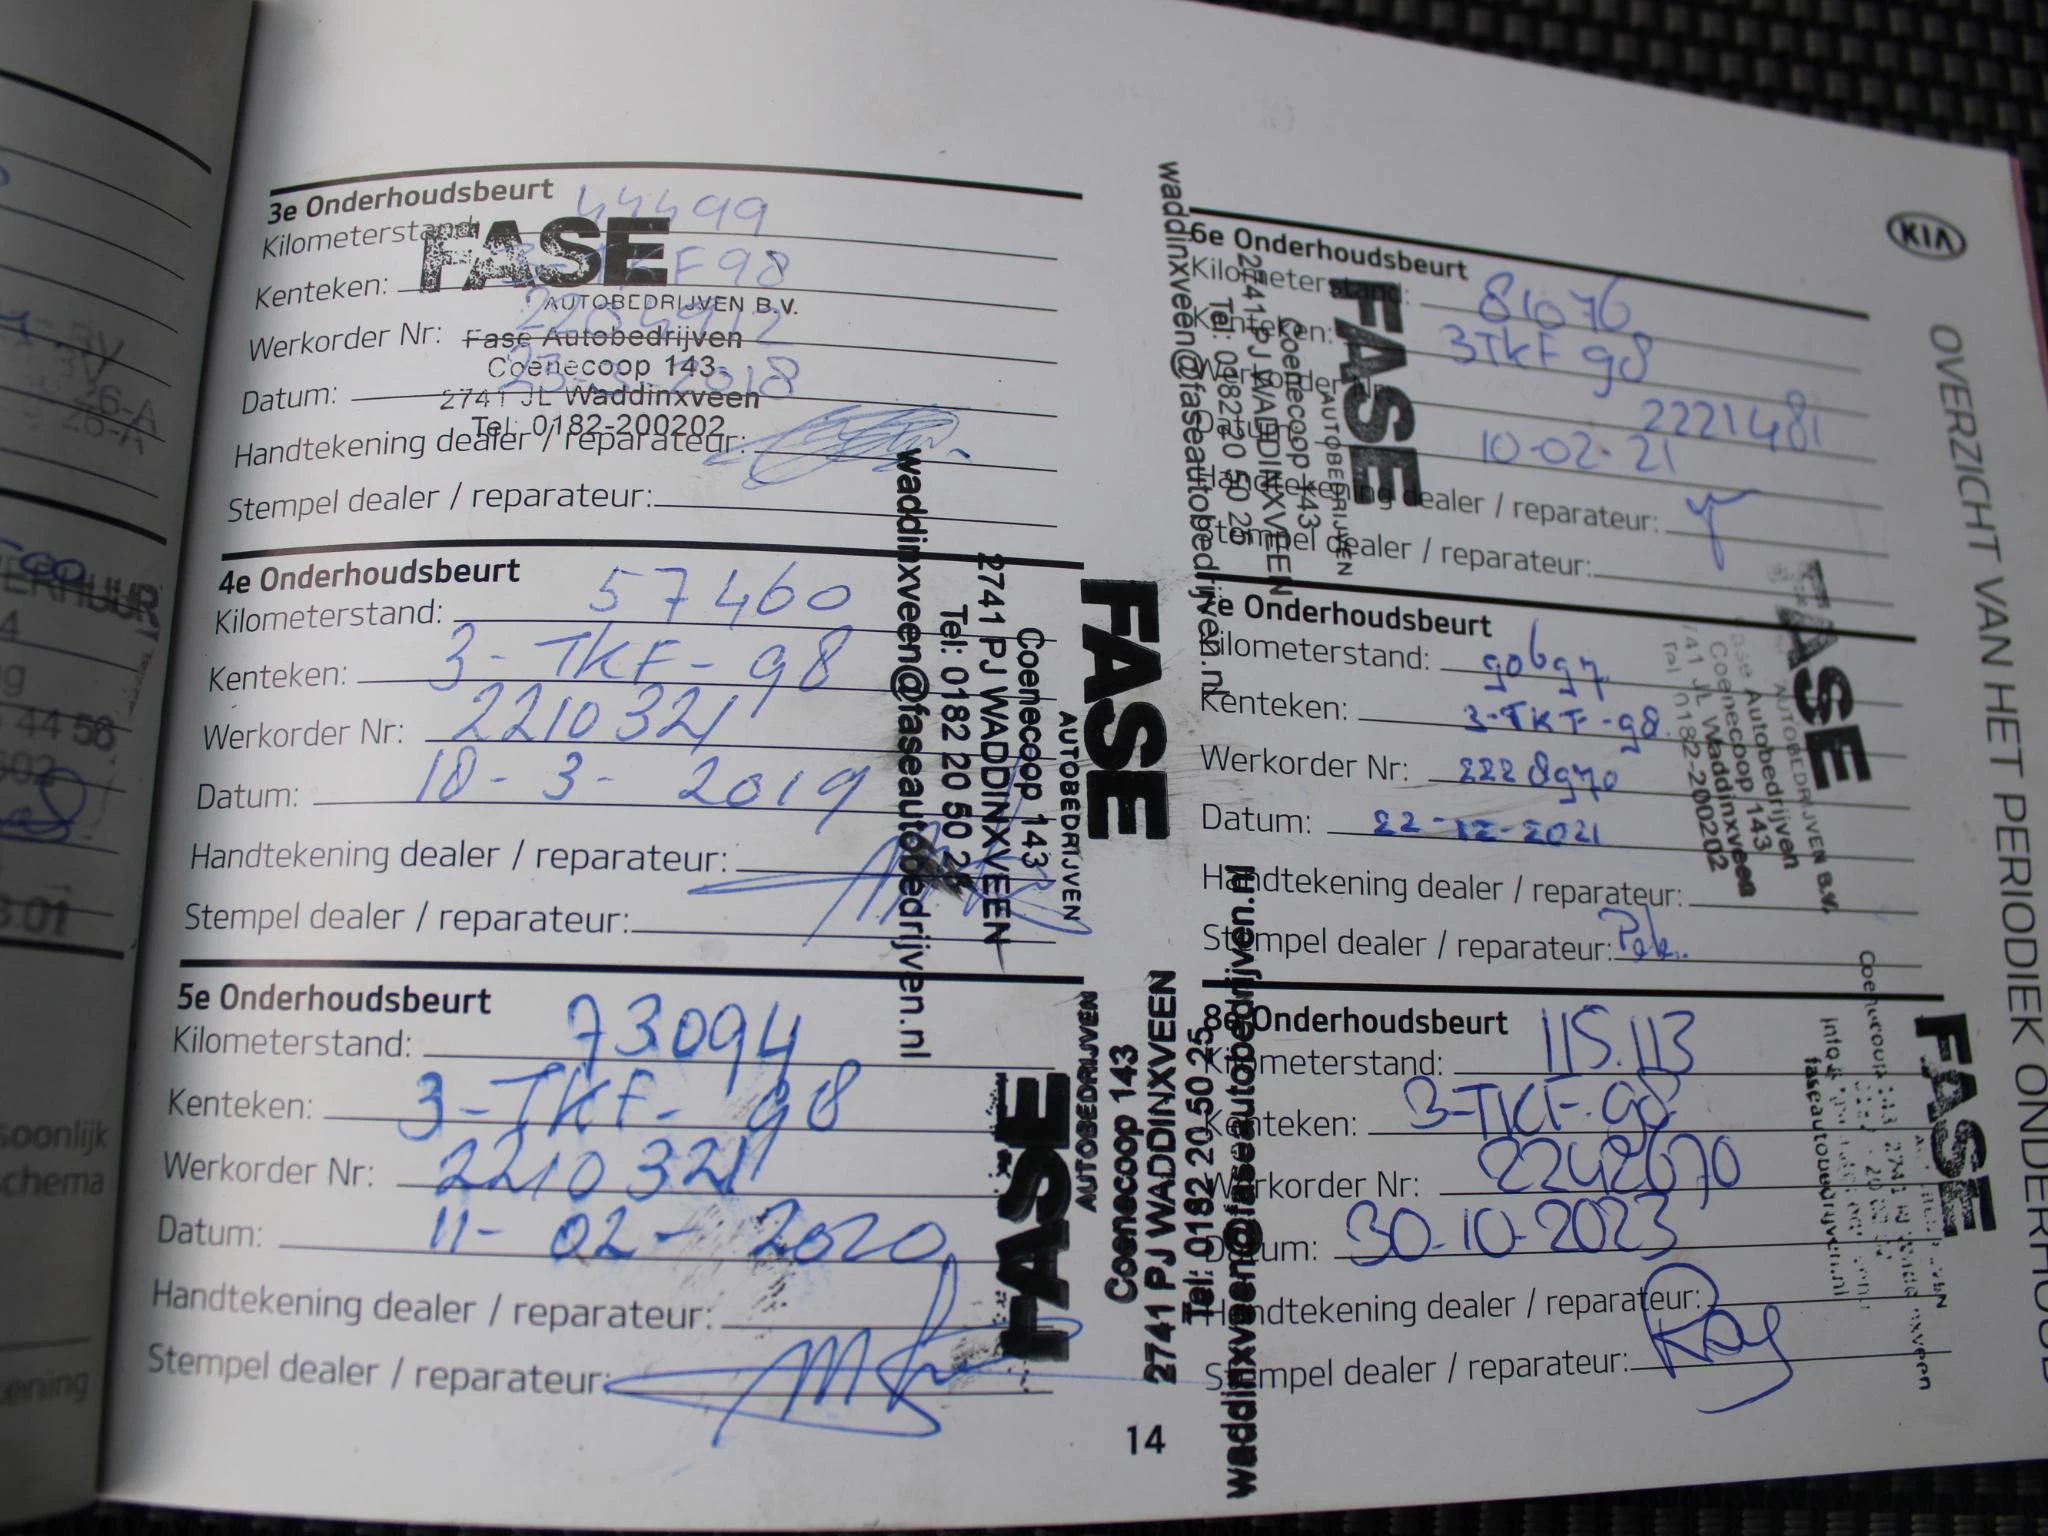 3e Onderhoudsbeurt
Kilometerstand: 44499
Kenteken: F98
Werkorder Nr:
Datum: 2018
Handtekening dealer / reparateur:
Stempel dealer / reparateur:
FASE
AUTOBEDRIJVEN B.V.
Fase Autobedrijven
Coenecoop 143
2741 JL Waddinxveen
Tel: 0182-200202
4e Onderhoudsbeurt
Kilometerstand: 57460
Kenteken: 3-TKF-98
Werkorder Nr: 2210321
Datum: 18-3-2019
Handtekening dealer / reparateur:
Stempel dealer / reparateur:
FASE
AUTOBEDRIJVEN
Coenecoop 143
2741 PJ WADDINXVEEN
Tel: 0182 20 50 2
waddinxveen@faseautobedrijven.nl
5e Onderhoudsbeurt
Kilometerstand: 73094
Kenteken: 3-TKF-98
Werkorder Nr: 2210321
Datum: 11-02-2020
Handtekening dealer / reparateur:
Stempel dealer / reparateur:
FASE
AUTOBEDRIJVEN
Coenecoop 143
2741 PJ WADDINXVEEN
Tel: 0182 20 50 25
waddinxveen@faseautobedrijven.nl
6e Onderhoudsbeurt
Kilometerstand: 81076
Kenteken: 3TKF 98
Werkorder Nr: 2221481
Datum: 10-02-21
Handtekening dealer / reparateur:
Stempel dealer / reparateur:
FASE
AUTOBEDRIJVEN
Coenecoop 143
2741 PJ WADDINXVEEN
Tel: 0182 20 50 25
waddinxveen@faseautobedrijven.nl
7e Onderhoudsbeurt
Kilometerstand: 90697
Kenteken: 3-TKF-98
Werkorder Nr: 2228970
Datum: 22-12-2021
Handtekening dealer / reparateur:
Stempel dealer / reparateur:
FASE
AUTOBEDRIJVEN B.V.
Fase Autobedrijven
Coenecoop 143
41 JL Waddinxveen
Tel 0182-200202
8e Onderhoudsbeurt
Kilometerstand: 115.113
Kenteken: 3-TKF-98
Werkorder Nr: 2242670
Datum: 30-10-2023
Handtekening dealer / reparateur:
Stempel dealer / reparateur:
FASE
faseautobedrijven.nl
14
KIA
OVERZICHT VAN HET PERIODIEK ONDERHOUD
soonlijk
chema
ening